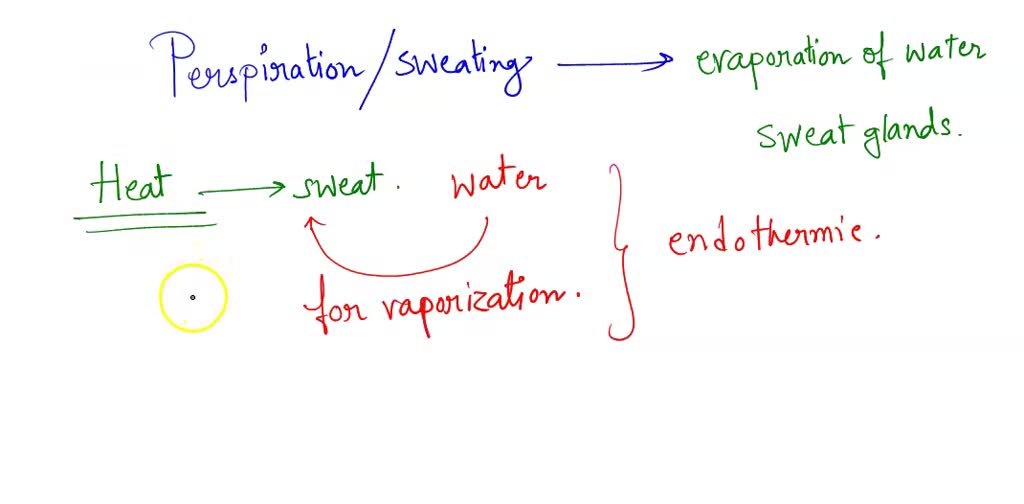 Perspiration/sweating → evaporation of water
sweat glands.
Heat → sweat. water
endothermic.
for vaporization.